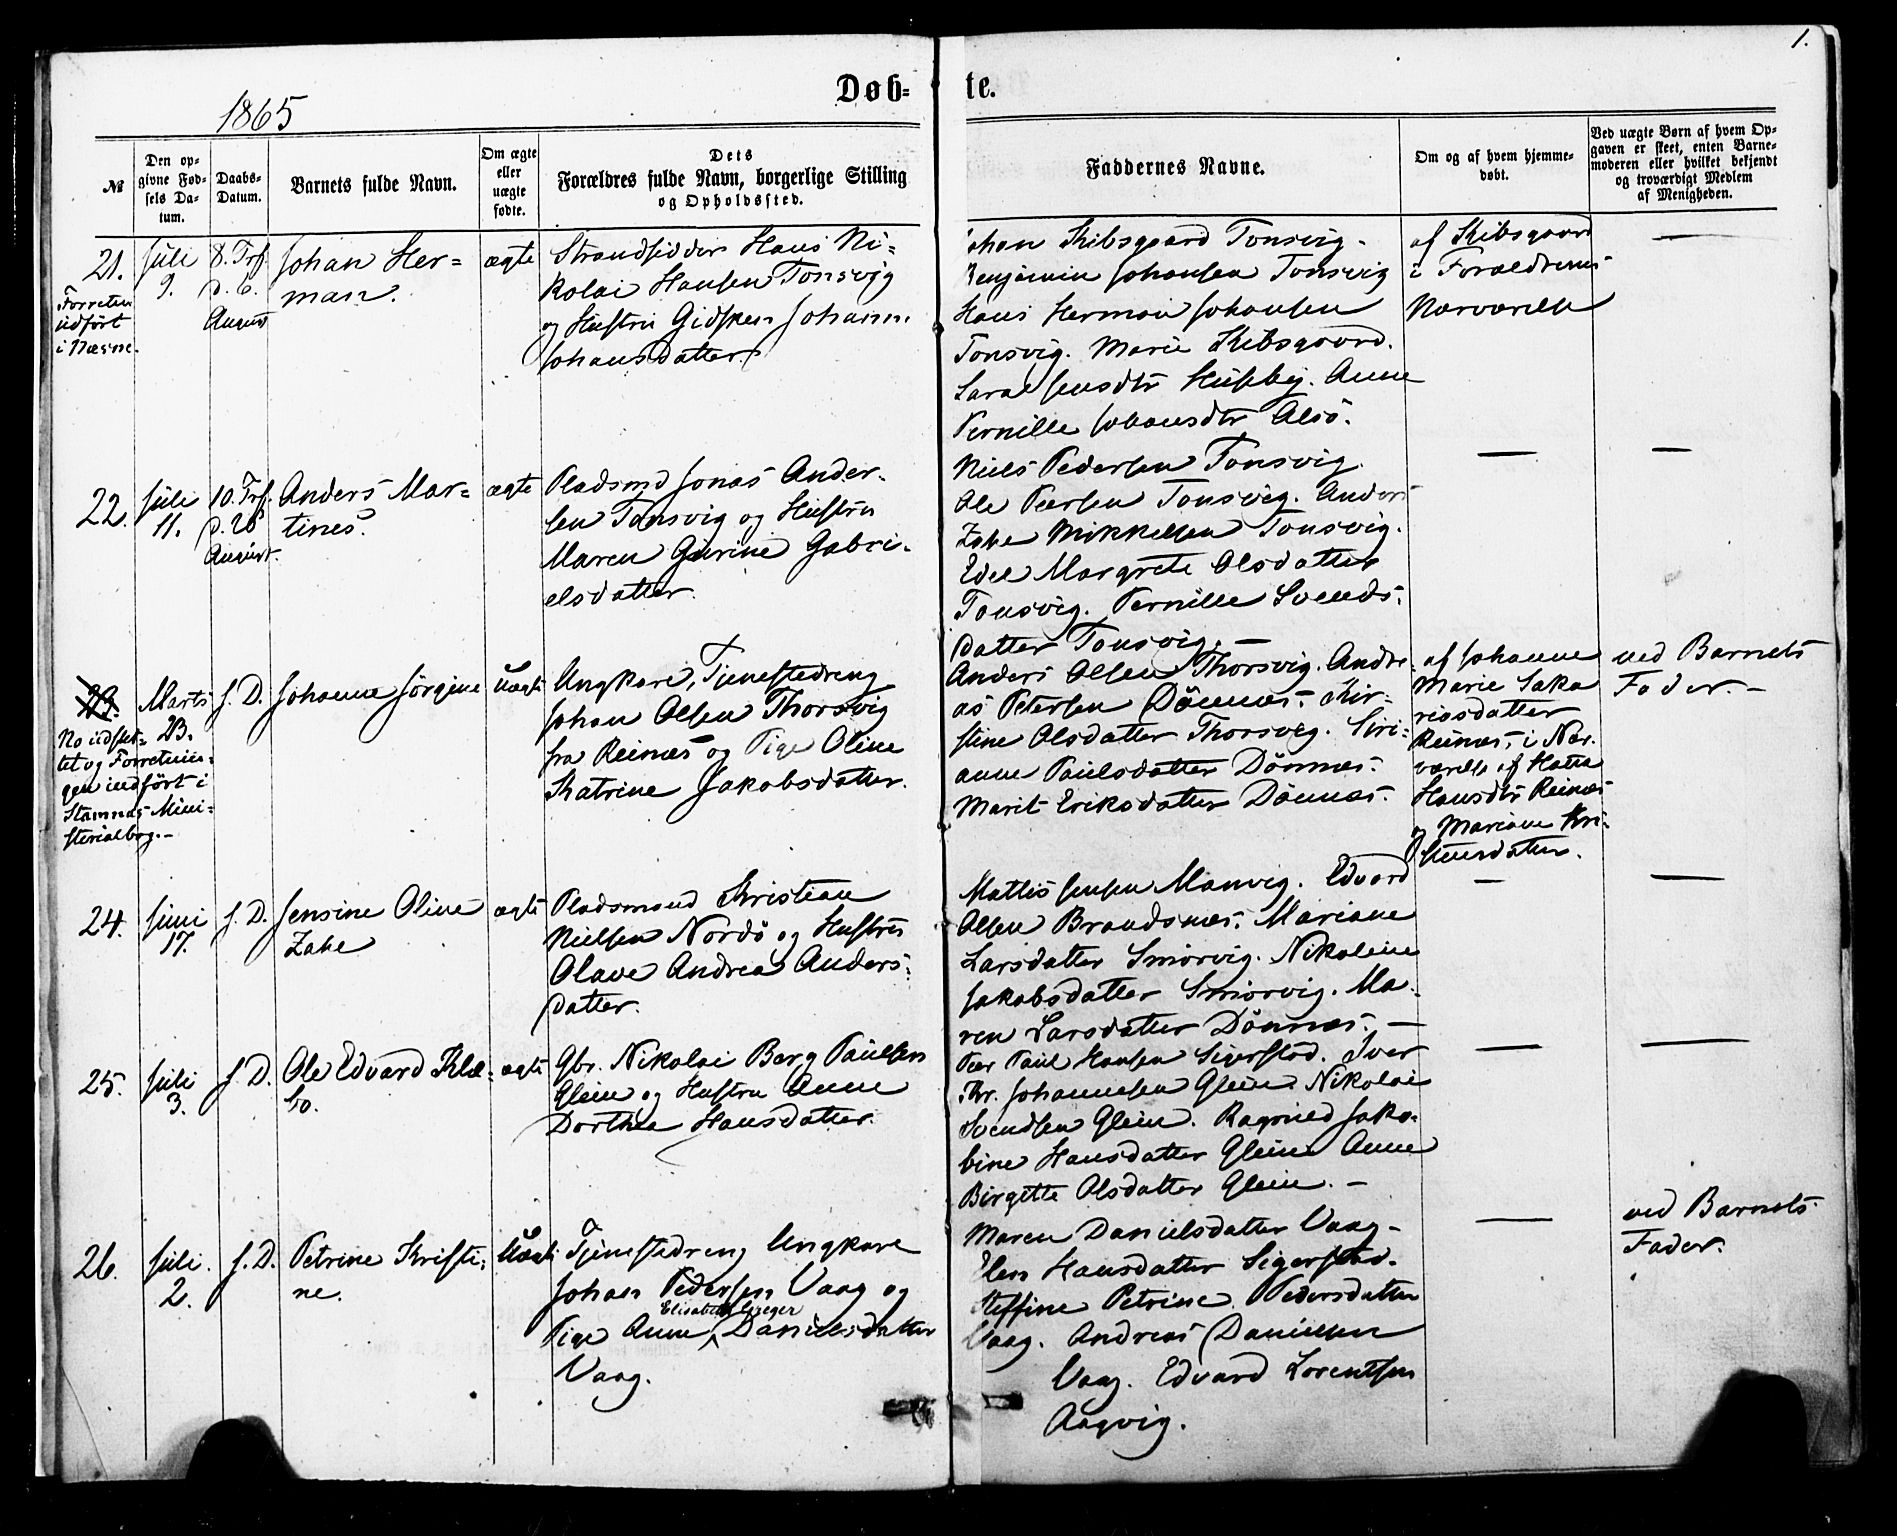 1.
Døb-te.
1865
№
Den op-
givne Fød-
sels Da-
tum.
Daabs-
Datum.
Barnets fulde Navn.
Om ægte
eller
uægte
fødte.
Dets
Forældres fulde Navn, borgerlige Stilling
og Opholdssted.
Faddernes Navne.
Om og af hvem hjemme-
døbt.
Ved uægte Børn af hvem Op-
gaven er skeet, enten Barne-
moderen eller hvilket bekjendt
og troværdigt Medlem
af Menigheden.
21.
Forretn
udført
i Næsne.
Juli
9.
8. Trf.
d. 6.
August
Johan Her-
man.
ægte
Strandsidder Hans Ni-
kolai Hansen Tonsvig
og Hustru Gidsken Johann.
Johansdatter.
Johan Kibsgaard Tonsvig.
Benjamin Johansen Tonsvig
Hans Herman Johansen
Tonsvig. Marie Kibsgaard.
Sara Jensdtr Husby. Anne
Pernille Johansdtr Alsö.
af Kibsgaard
i Forældrenes
Nærværelse
—
22.
Juli
11.
10. Trf.
d. 20
August.
Anders Mar-
tines.
ægte
Pladsmd Jonas Ander-
sen Tonsvig og Hustru
Maren Gurine Gabri-
elsdatter.
Niels Pedersen Tonsvig.
Ole Peersen Tonsvig. Anders
Zahe Mikkelsen Tonsvig.
Edel Margrete Olsdatter
Tonsvig. Pernille Svends-
datter Tonsvig. —
—
—
23.
No udslet-
tet og Forretnin-
gen indført i
Stamnæs Mini-
sterialbog.-
Marts
23.
s. D.
Johanne Jørgine
Uægte
Ungkarl, Tjenestedreng
Johan Olsen Thorsvig
fra Reinæs og Pige Oline
Katrine Jakobsdatter.
Anders Olsen Thorsvig. Andre-
as Petersen Dönnæs. Kir-
stine Olsdatter Thorsvig. Siri-
anne Paulsdatter Dönnæs.
Marit Eriksdatter Dönnæs.
af Johanne
Marie Saka
riasdatter
Reinæs, i Nær-
værelse af
Hansdtr Reinæs
og Mariane Kri-
stensdatter.
ved Barnets
Fader.-
24.
Juni
17.
s. D.
Jensine Oline
Zahe
ægte
Pladsmand Kristian
Nielsen Nordö og Hustru
Olave Andrea Anders-
datter.
Mattis Jensen Manvig. Edvard
Olsen Brandsnæs. Mariane
Larsdatter Smörvig. Nikoline
Jakobsdatter Smörvig. Ma-
ren Larsdatter Dönnæs. —
—
—
25.
Juli
3.
s. D.
Ole Edvard Klæ-
bo.
ægte
Gbr. Nikolai Berg Paulsen
Glein og Hustru Anne
Dorthea Hansdatter.
Peer Paul Hansen Sigerstad. Iver
Kr. Johannesen Glein. Nikolai
Svendsen Glein. Ragnild Jako-
bine Hansdatter Glein Anne
Birgitte Olsdatter Glein. —
—
—
26.
Juli.
2.
s. D.
Petrine Kristi-
ne.
Uægte
Tjenestedreng Ungkarl
Johan Pedersen Vaag og
Elisabeth
Pige Anne Danielsdatter
Vaag.
Maren Danielsdatter Vaag-
Elen Hansdatter Sigerstad.
Steffine Petrine Pedersdatter
Vaag. Andreas Danielsen
Vaag. Edvard Lorentsen
Aagvig.
—
ved Barnets
Fader.